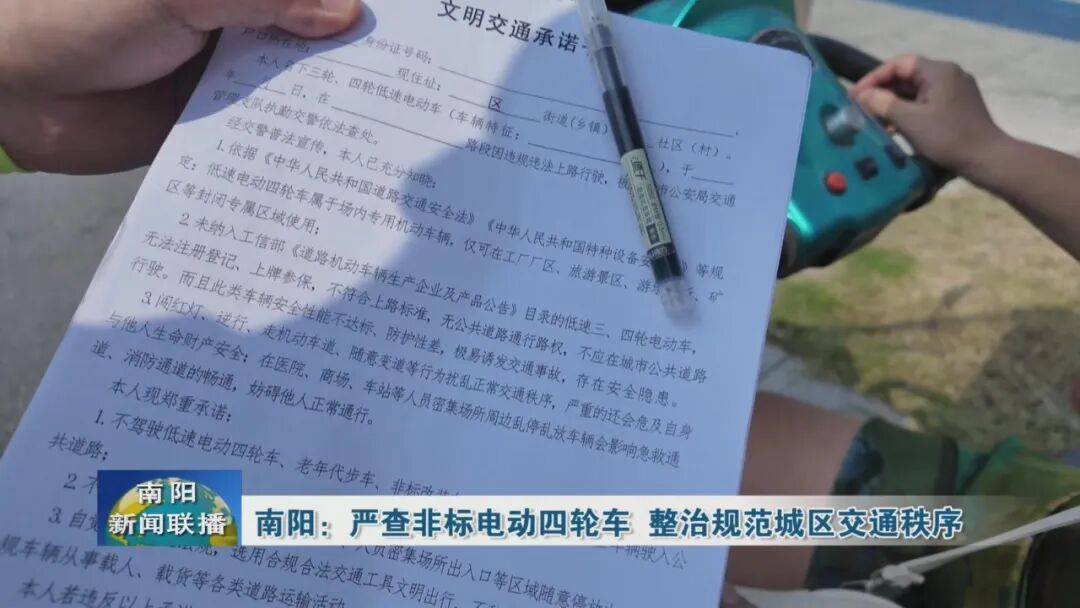 文明交通承诺
身份证号码：
现住址：
区 街道(乡镇) 社区（村）。
本人名下三轮、四轮低速电动车（车辆特征： ），于
年 月 日，在 路段因违规违法上路行驶，被 市公安局交通
管理支队执勤交警依法查处。
经交警普法宣传，本人已充分知晓：
1.依据《中华人民共和国道路交通安全法》《中华人民共和国特种设备安 》等规
定：低速电动四轮车属于场内专用机动车辆，仅可在工厂厂区、旅游景区、游 、矿
区等封闭专属区域使用；
2.未纳入工信部《道路机动车辆生产企业及产品公告》目录的低速三、四轮电动车，
无法注册登记、上牌参保，不符合上路标准，无公共道路通行路权，不应在城市公共道路
行驶。而且此类车辆安全性能不达标、防护性差，极易诱发交通事故，存在安全隐患。
3.闯红灯、逆行、走机动车道、随意变道等行为扰乱正常交通秩序，严重的还会危及自身
与他人生命财产安全；在医院、商场、车站等人员密集场所周边乱停乱放车辆会影响急救通
道、消防通道的畅通，妨碍他人正常通行。
本人现郑重承诺：
1.不驾驶低速电动四轮车、老年代步车、非标改装
共道路；
2.不
车辆驶入公
3.自觉
人员密集场所出入口等区域随意停
选用合规合法交通工具文明出行，不
规车辆从事载人、载货等各类道路运输活动
本人若违反以上承
南阳
新闻联播
南阳：严查非标电动四轮车 整治规范城区交通秩序